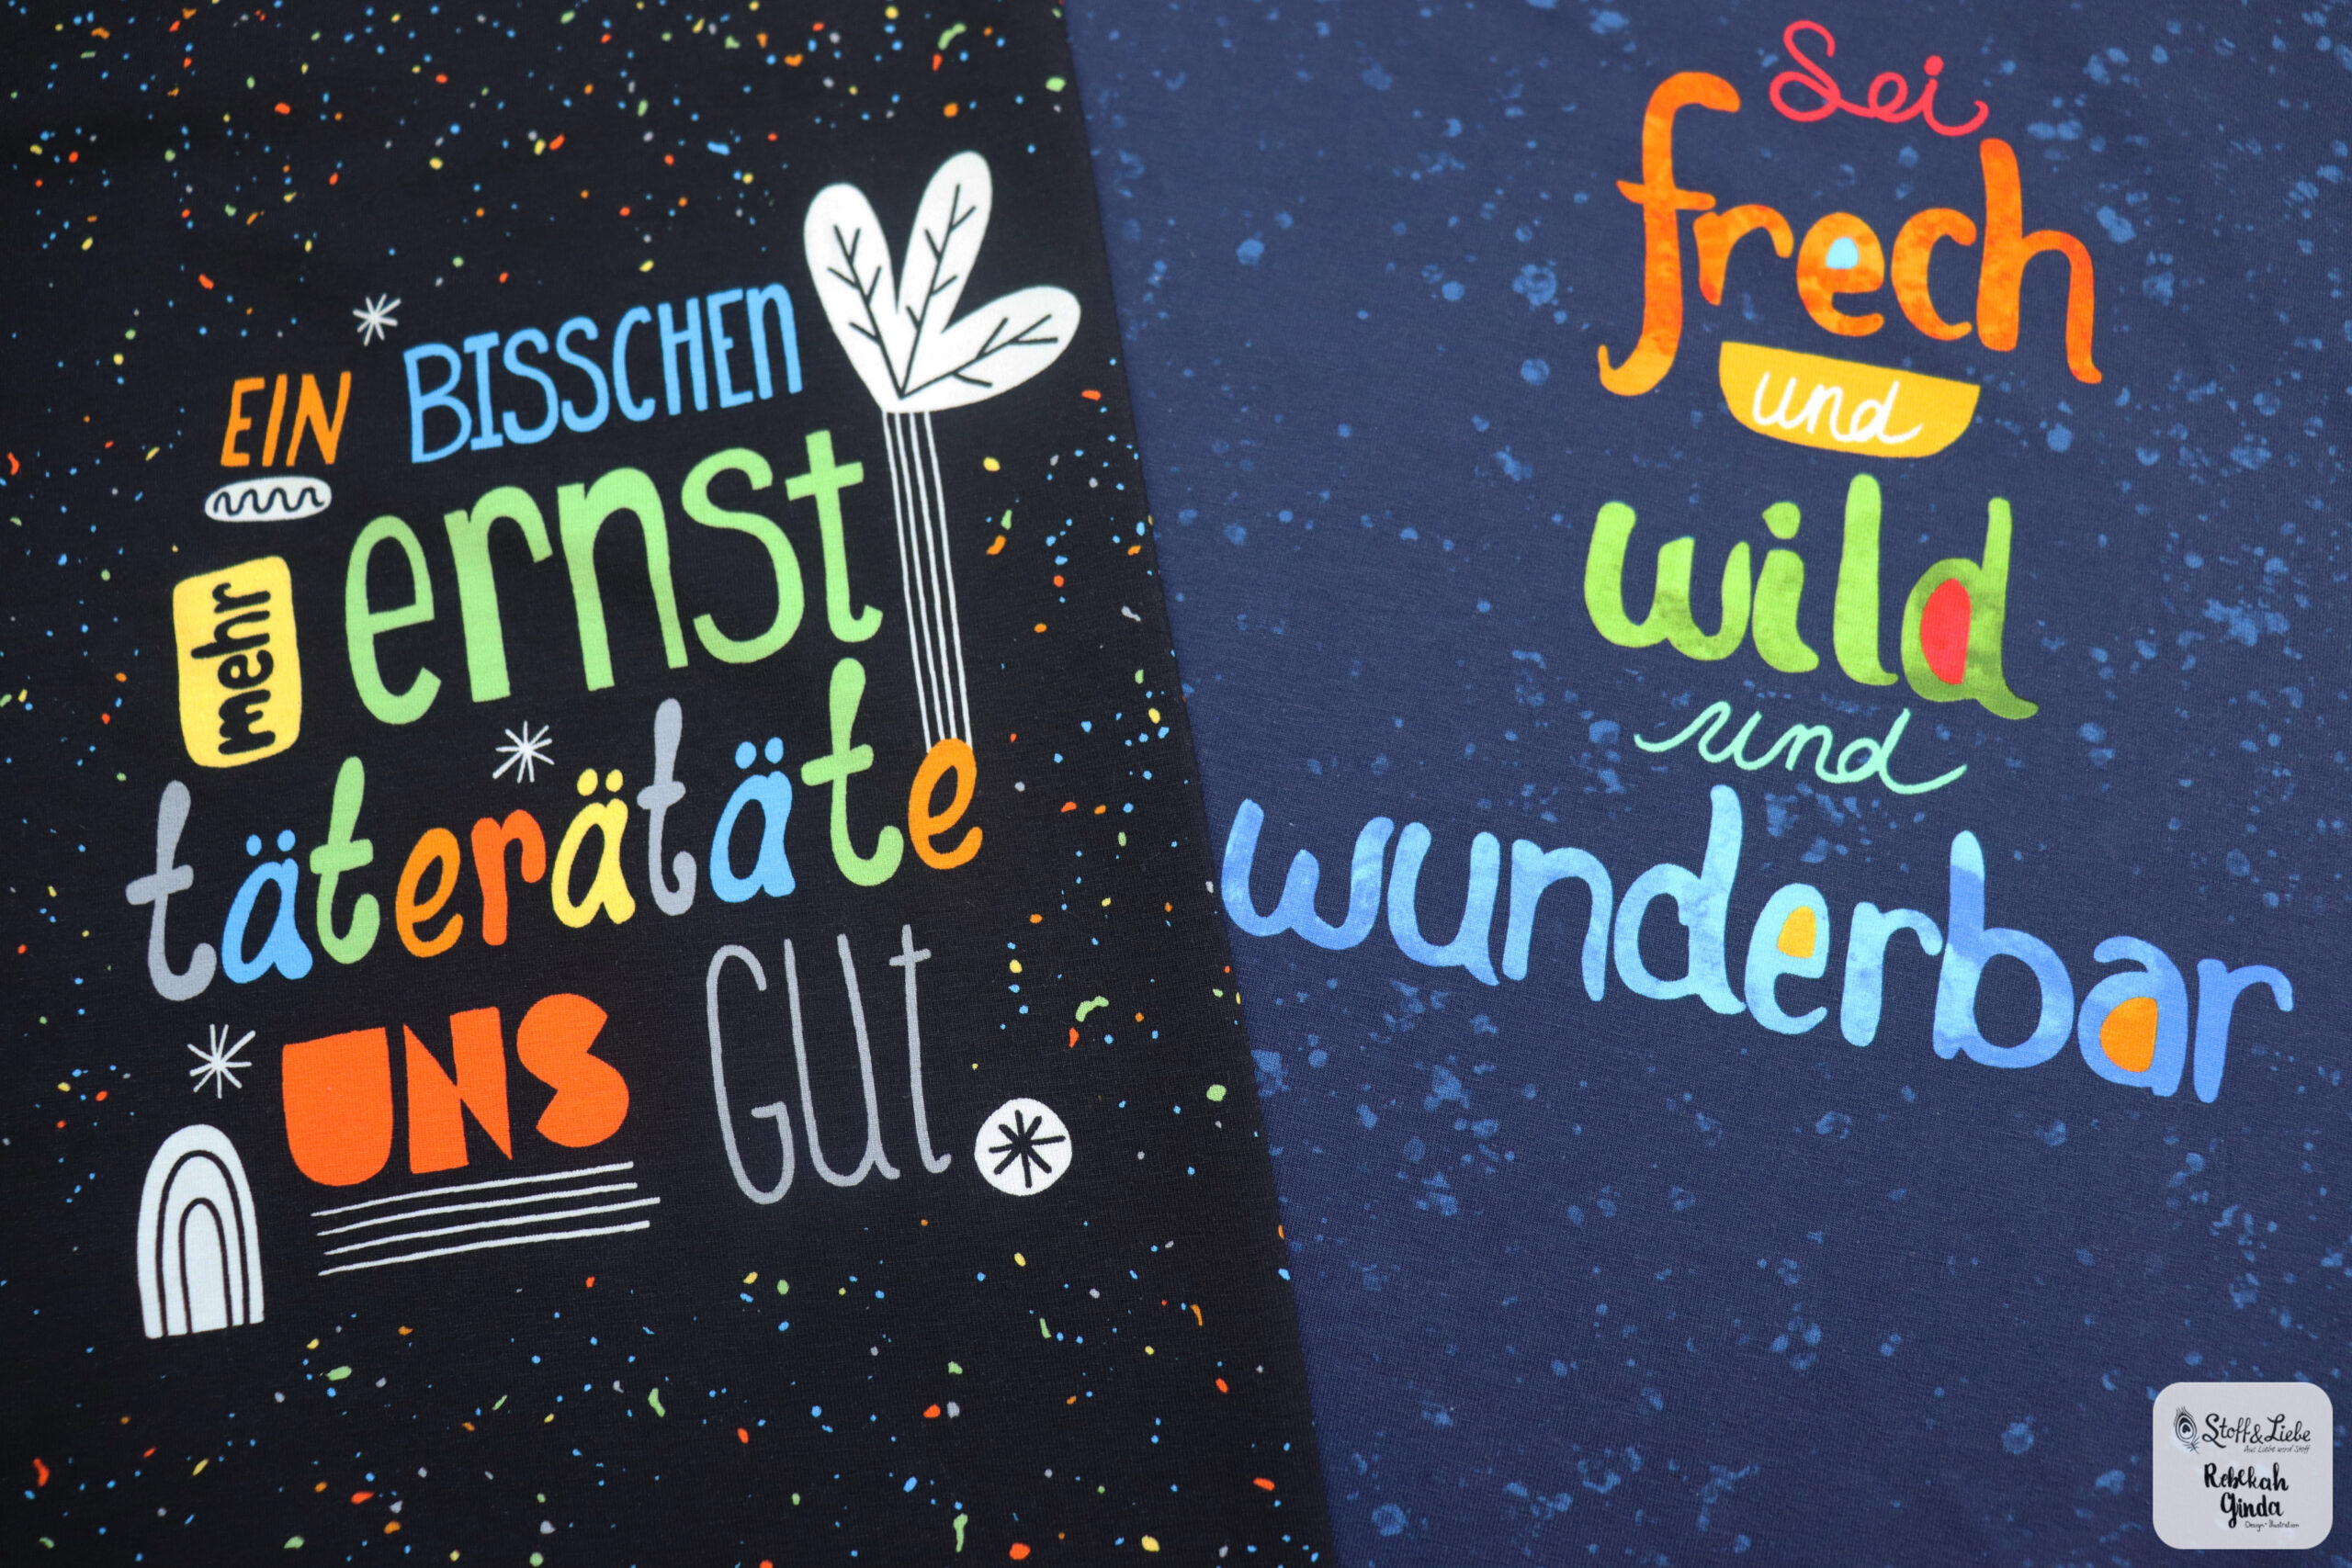 EIN BISSCHEN
mehr ernst
täterätäte
UNS GUT
Sei
frech
und
wild
und
wunderbar
Stoff&Liebe
Aus Liebe wird Stoff
Rebekah
Ginda
Design • Illustration